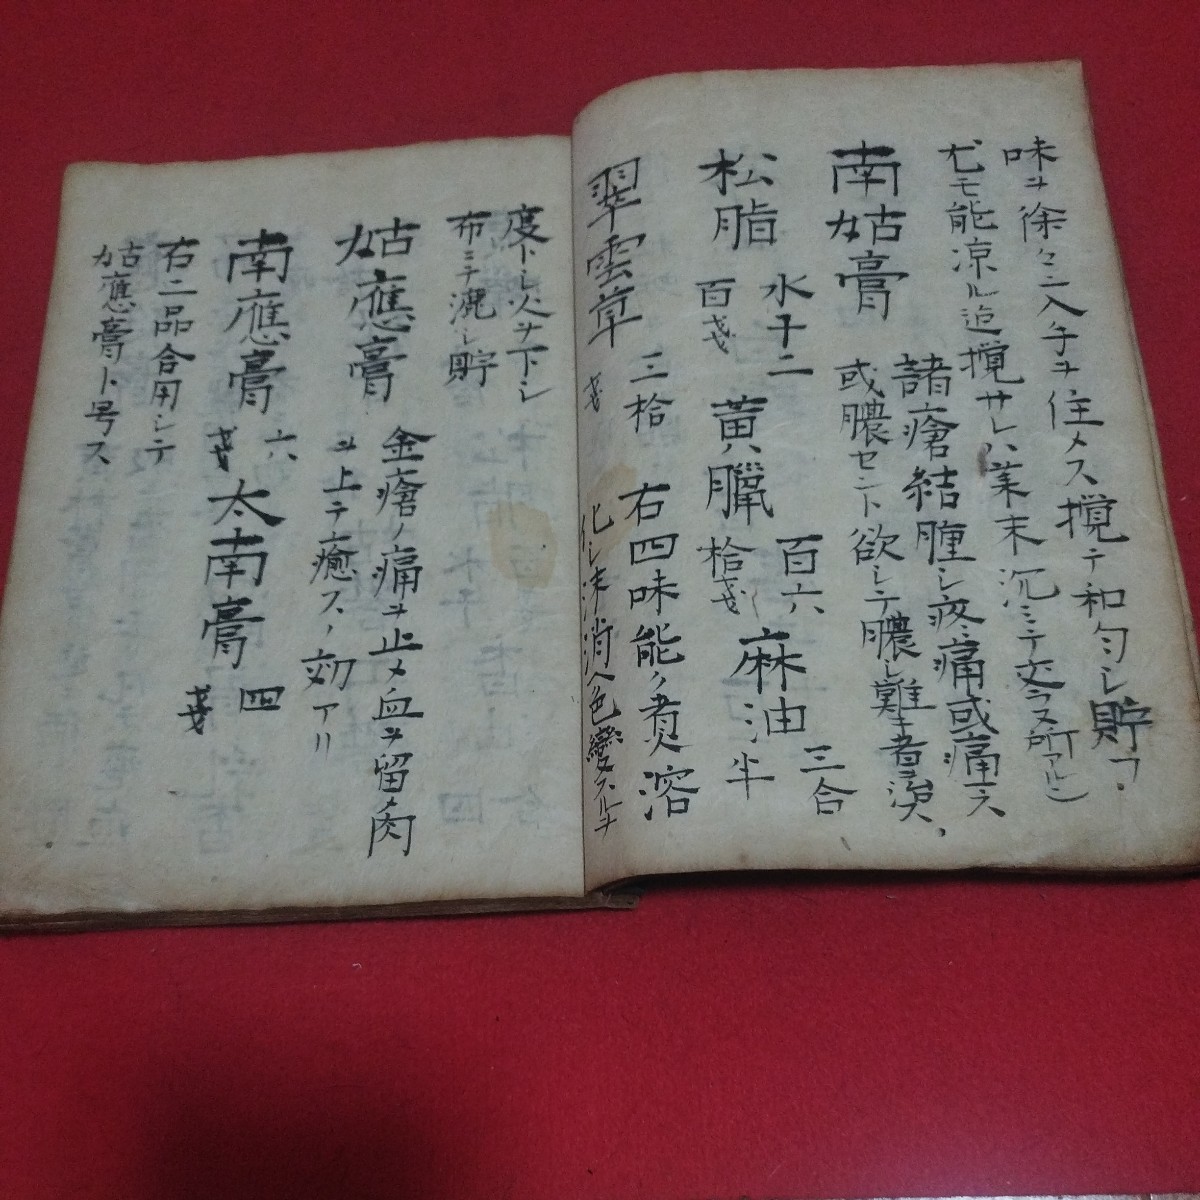 味ヲ徐々ニ入手ヲ住メス攪テ和匀シ貯フ
尤モ能凉ル迠攪サレハ葉末沉ミテ交ラヌ所アルシ
南姑膏
諸瘡結腫シ疼痛或痛マス
或膿セント欲シテ膿シ難キ者ヲ治ス
松脂 水千二百戔 黄蝋 百六拾戔 麻油 三合半
翠雲草 三拾戔 右四味能ク煮溶
化シ沫消ヘ色變スルヲ
度トシ火ヲ下シ
布ニテ漉シ貯
姑應膏 金瘡ノ痛ヲ止メ血ヲ留メ肉
ヲ上テ癒スノ効アリ
南應膏 六戔 太南膏 四戔
右二品合用シテ
姑應膏ト号ス